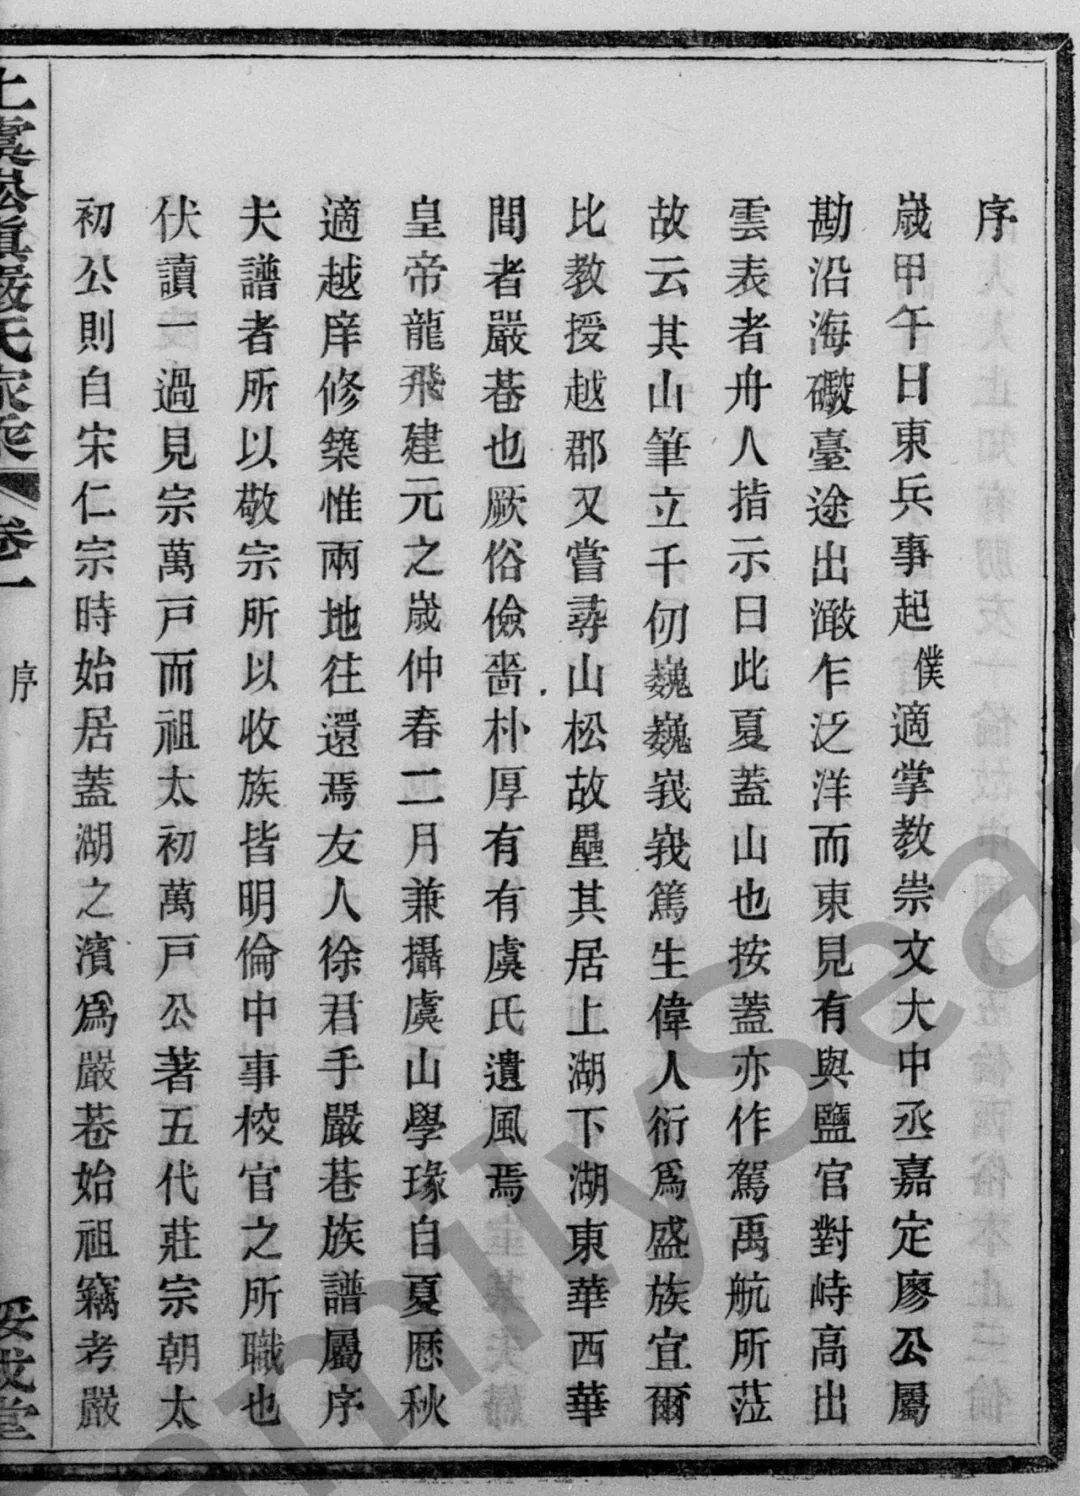 序
歲甲午日東兵事起僕適掌教崇文大中丞嘉定廖公屬
勘沿海礮臺途出澉乍泛洋而東見有與鹽官對峙高出
雲表者舟人指示曰此夏蓋山也按蓋亦作駕禹航所蒞
故云其山筆立千仞巍巍峩峩篤生偉人衍爲盛族宜爾
比教授越郡又嘗尋山松故壘其居上湖下湖東華西華
間者嚴巷也厥俗儉嗇朴厚有有虞氏遺風焉
皇帝龍飛建元之歲仲春二月兼攝虞山學瑑自夏歷秋
適越庠修築惟兩地往還焉友人徐君手嚴巷族譜屬序
夫譜者所以敬宗所以收族皆明倫中事校官之所職也
伏讀一過見宗萬戸而祖太初萬戸公著五代莊宗朝太
初公則自宋仁宗時始居蓋湖之濱爲嚴巷始祖竊考嚴
上虞崧鎭嚴氏家乘 卷一 序 綏成堂